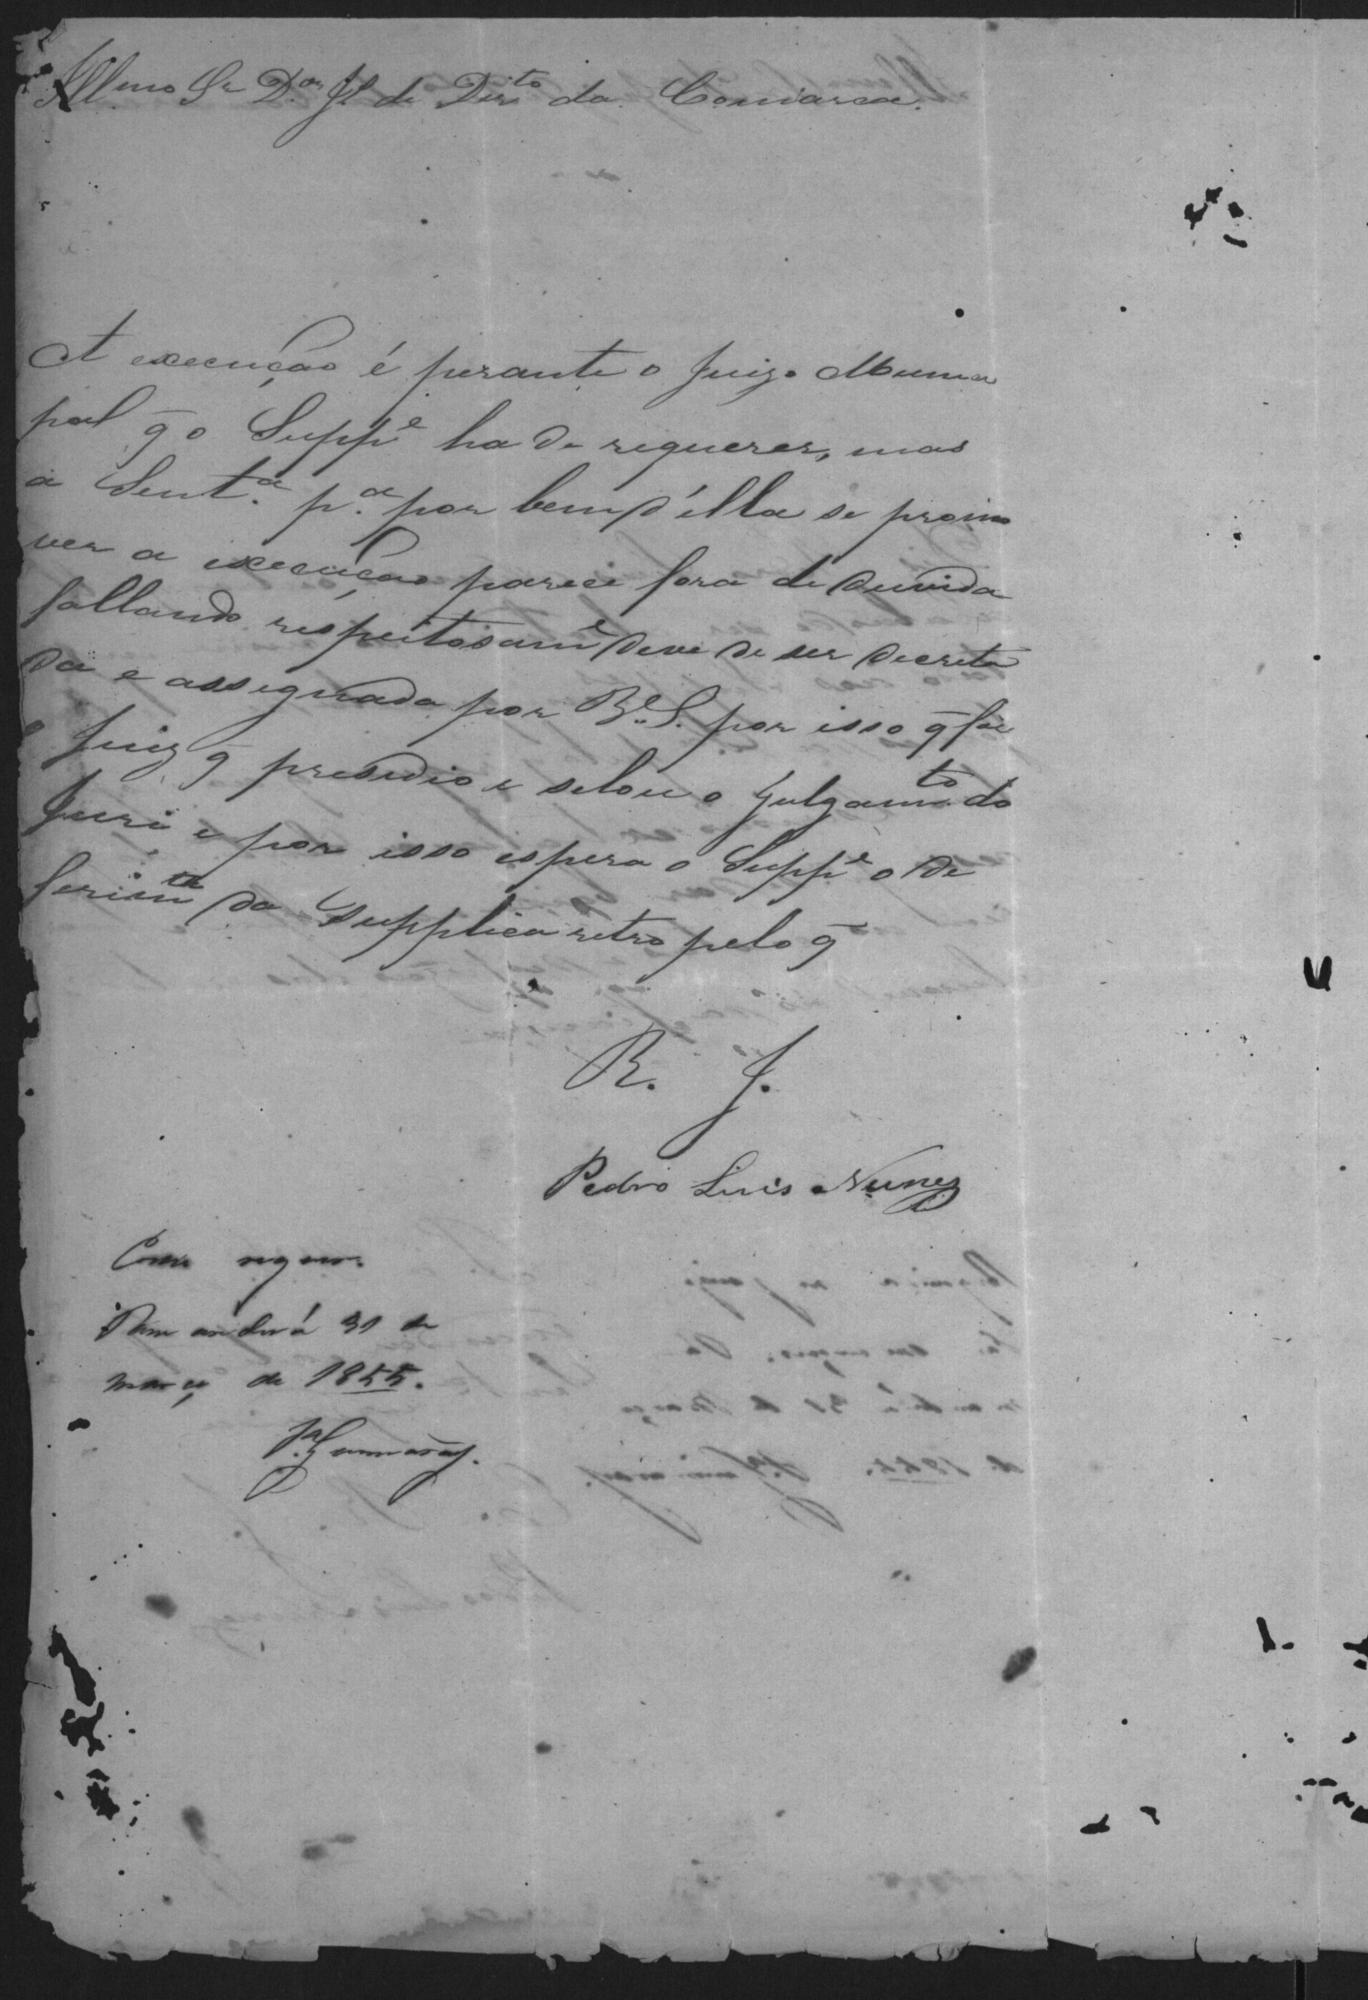 Illmo Sr Dor Jz de Dirto da Comarca.
A execução é perante o Juizo Munici
pal q̃ o Suppe ha de requerer, mas
a Senta. pa. por bem d'élla se promo
ver a execução parece fora de duvida
fallando respeitosame deve de ser decreta
da e assignada por por isso q̃ foi
o Juiz q̃ presedio e selou o Julgamto do
Juri, e por isso espera o Suppe o de
ferimto da Supplica retro pelo q̃
R. J.
Pedro Luis Nunes
Como requer.
Pamandurá 31 de
março de 1855.
Pa. Guimarães.